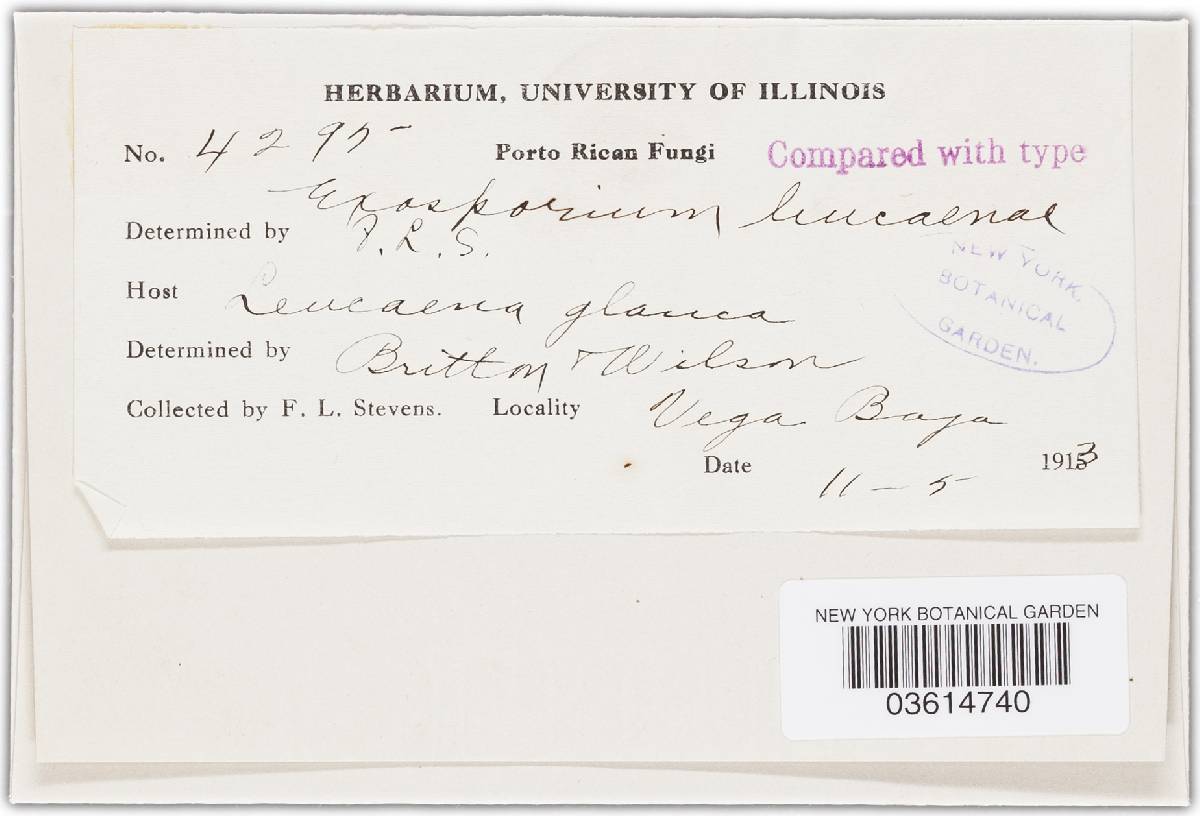 HERBARIUM, UNIVERSITY OF ILLINOIS
No. 4295 Porto Rican Fungi Compared with type
Exosporium leucaenae
Determined by F. L. S.
NEW YORK
BOTANICAL
GARDEN.
Host Leucaena glauca
Determined by Britton & Wilson
Collected by F. L. Stevens. Locality Vega Baja
Date 11-5 1913
NEW YORK BOTANICAL GARDEN
03614740